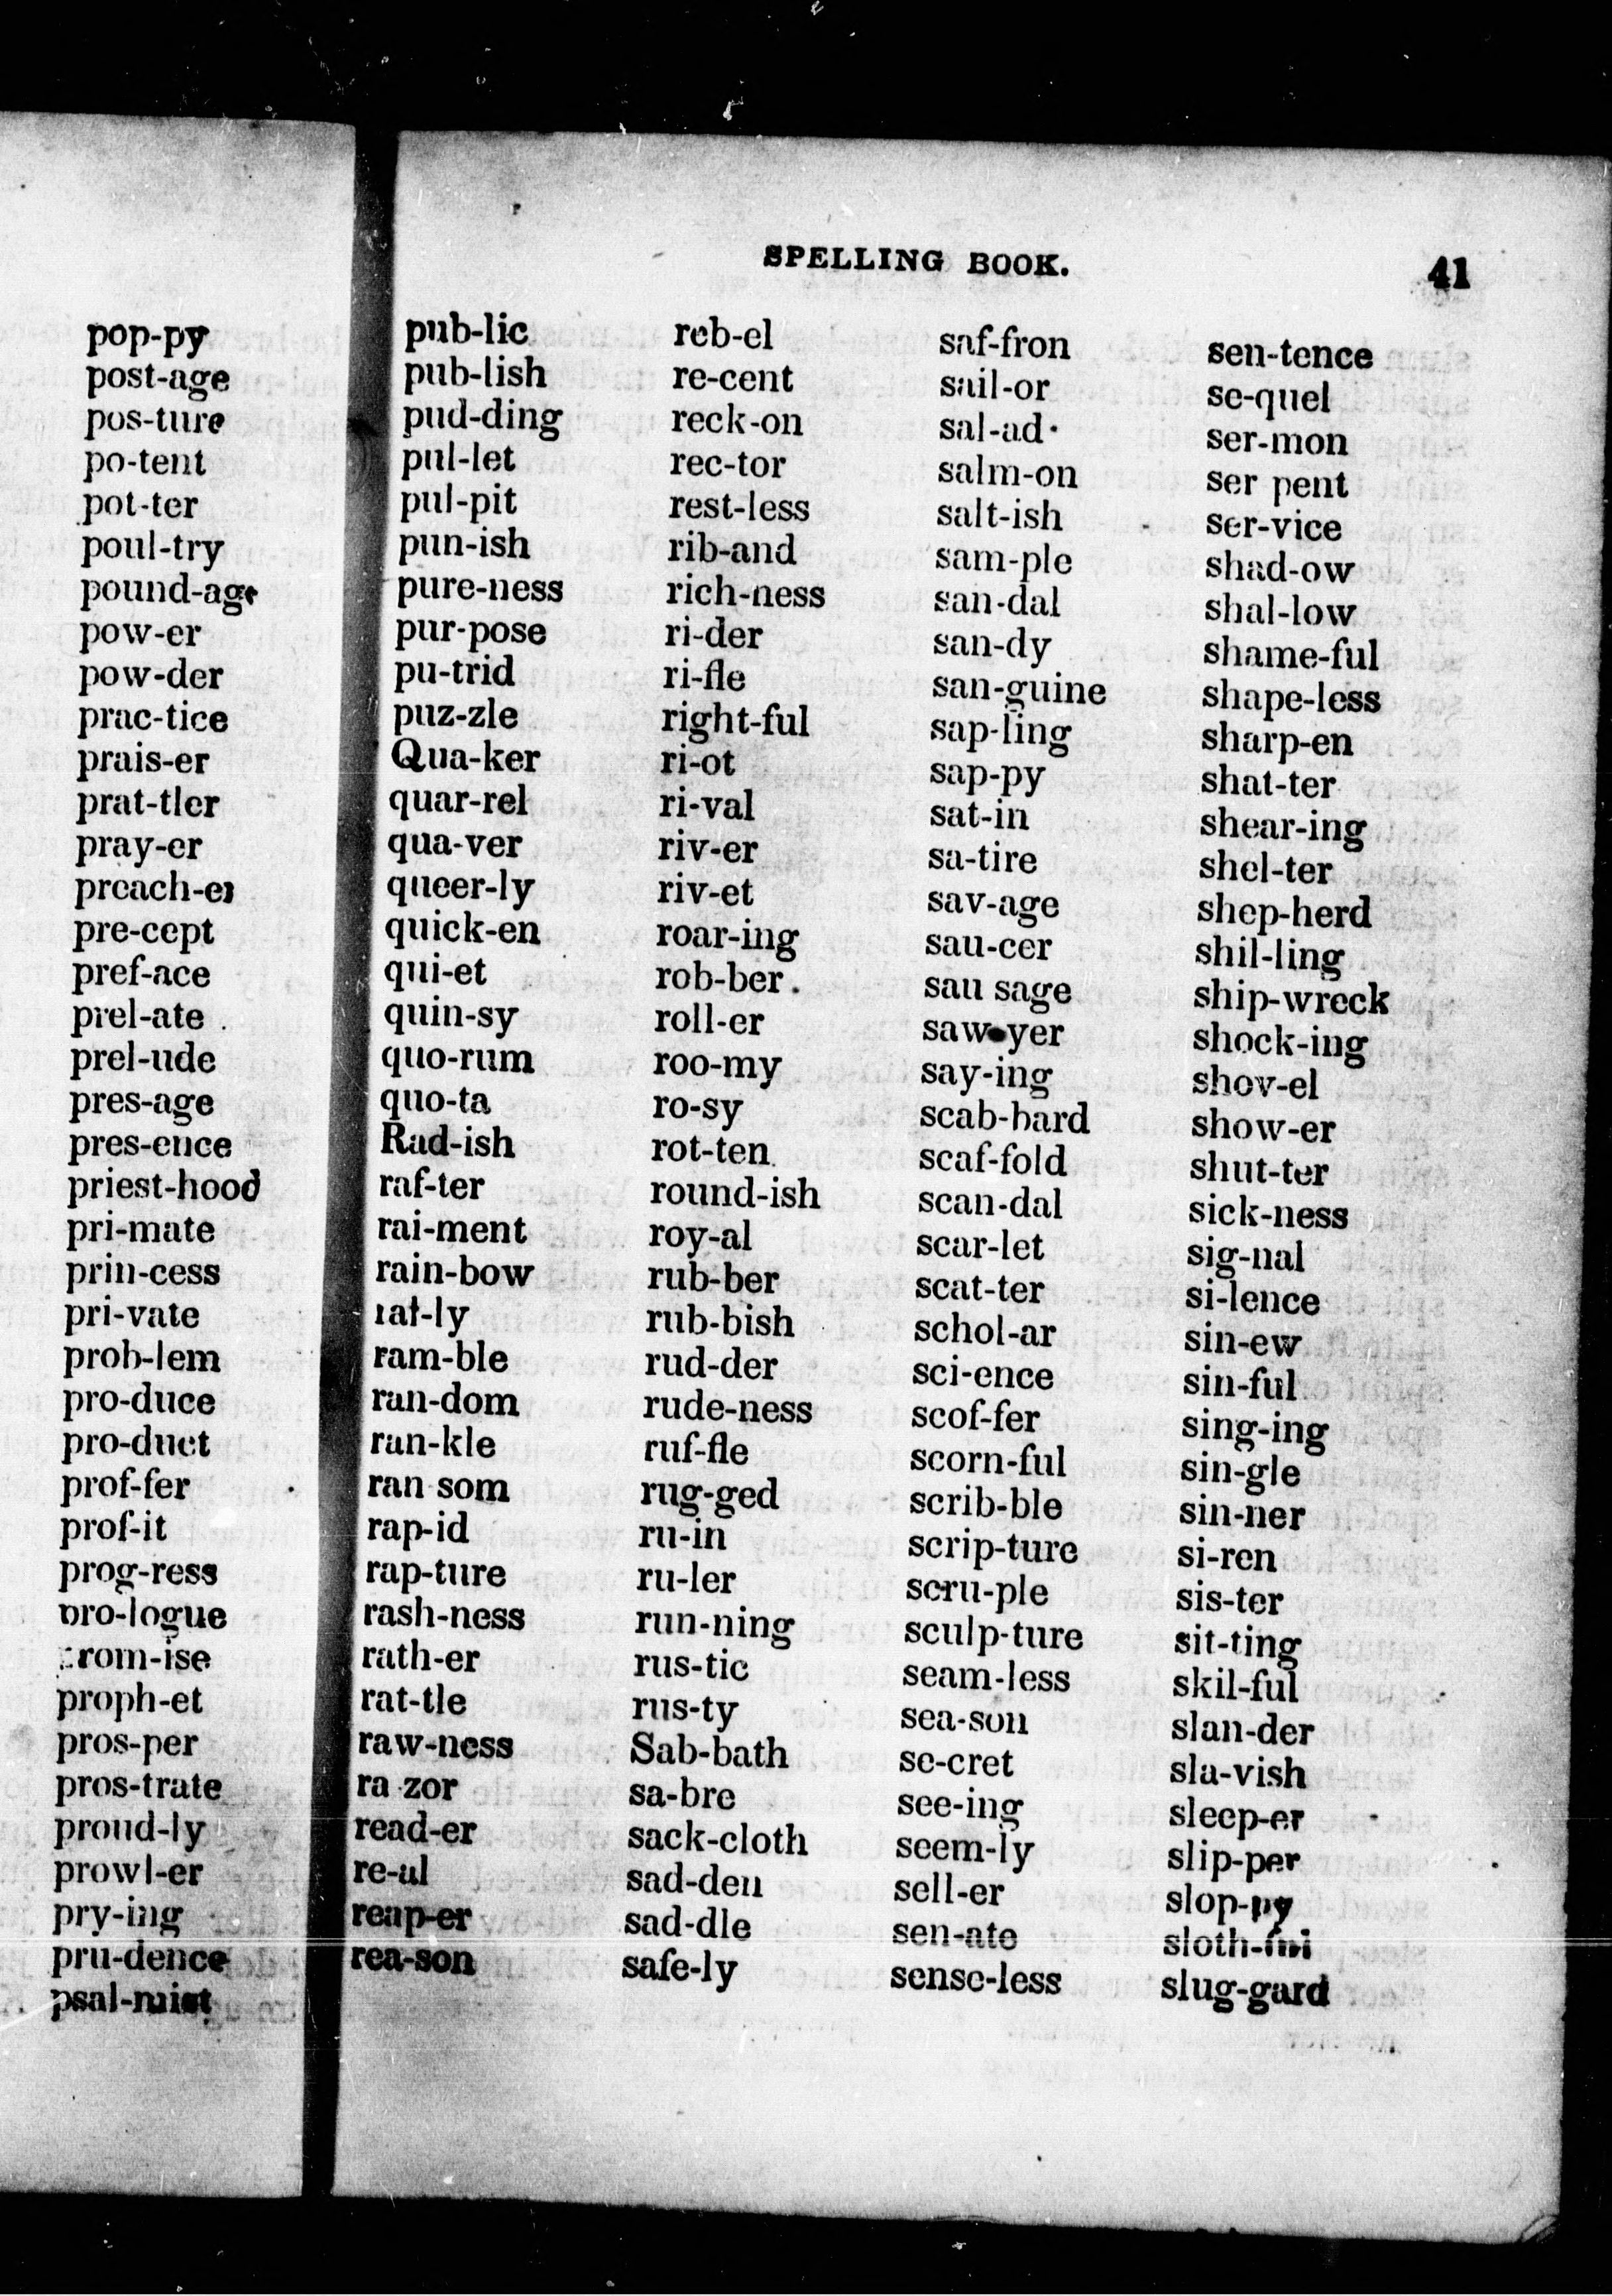 pop-py
post-age
pos-ture
po-tent
pot-ter
poul-try
pound-age
pow-er
pow-der
prac-tice
prais-er
prat-tler
pray-er
preach-er
pre-cept
pref-ace
prel-ate
prel-ude
pres-age
pres-ence
priest-hood
pri-mate
prin-cess
pri-vate
prob-lem
pro-duce
pro-duct
prof-fer
prof-it
prog-ress
pro-logue
prom-ise
proph-et
pros-per
pros-trate
proud-ly
prowl-er
pry-ing
pru-dence
psal-mist
SPELLING BOOK. 41
pub-lic
pub-lish
pud-ding
pul-let
pul-pit
pun-ish
pure-ness
pur-pose
pu-trid
puz-zle
Qua-ker
quar-rel
qua-ver
queer-ly
quick-en
qui-et
quin-sy
quo-rum
quo-ta
Rad-ish
raf-ter
rai-ment
rain-bow
ral-ly
ram-ble
ran-dom
ran-kle
ran som
rap-id
rap-ture
rash-ness
rath-er
rat-tle
raw-ness
ra zor
read-er
re-al
reap-er
rea-son
reb-el
re-cent
reck-on
rec-tor
rest-less
rib-and
rich-ness
ri-der
ri-fle
right-ful
ri-ot
ri-val
riv-er
riv-et
roar-ing
rob-ber
roll-er
roo-my
ro-sy
rot-ten
round-ish
roy-al
rub-ber
rub-bish
rud-der
rude-ness
ruf-fle
rug-ged
ru-in
ru-ler
run-ning
rus-tic
rus-ty
Sab-bath
sa-bre
sack-cloth
sad-den
sad-dle
safe-ly
saf-fron
sail-or
sal-ad
salm-on
salt-ish
sam-ple
san-dal
san-dy
san-guine
sap-ling
sap-py
sat-in
sa-tire
sav-age
sau-cer
sau sage
saw-yer
say-ing
scab-bard
scaf-fold
scan-dal
scar-let
scat-ter
schol-ar
sci-ence
scof-fer
scorn-ful
scrib-ble
scrip-ture
scru-ple
sculp-ture
seam-less
sea-son
se-cret
see-ing
seem-ly
sell-er
sen-ate
sense-less
sen-tence
se-quel
ser-mon
ser pent
ser-vice
shad-ow
shal-low
shame-ful
shape-less
sharp-en
shat-ter
shear-ing
shel-ter
shep-herd
shil-ling
ship-wreck
shock-ing
shov-el
show-er
shut-ter
sick-ness
sig-nal
si-lence
sin-ew
sin-ful
sing-ing
sin-gle
sin-ner
si-ren
sis-ter
sit-ting
skil-ful
slan-der
sla-vish
sleep-er
slip-per
slop-py
sloth-ful
slug-gard